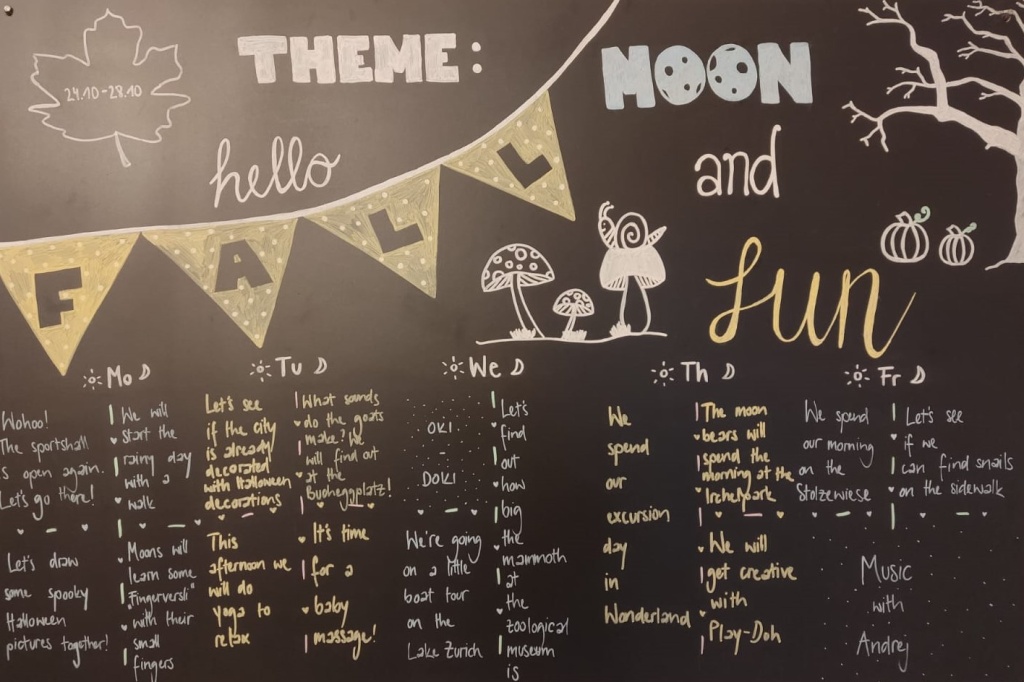 24.10-28.10
THEME: MOON
hello
and
FALL
fun
Mo
Wohoo!
The sportshall
is open again.
Let's go there!
We will
start the
rainy day
with a
walk
Let's draw
some spooky
Halloween
pictures together!
Moons will
learn some
"Fingerversli"
with their
small
fingers
Tu
Let's see
if the city
is already
decorated
with Halloween
decorations
What sounds
do the goats
make? We
will find out
at the
bucheggplatz!
This
afternoon we
will do
yoga to
relax
It's time
for a
baby
massage!
We
OKI
-
DOKI
We're going
on a little
boat tour
on the
Lake Zurich
Let's
find
out
how
big
the
mammoth
at
the
zoological
museum
is
Th
We
spend
our
excursion
day
in
Wonderland
The moon
bears will
spend the
morning at the
Irchelpark
We will
get creative
with
Play-Doh
Fr
We spend
our morning
on the
Stolzewiese
Let's see
if we
can find snails
on the sidewalk
Music
with
Andrej